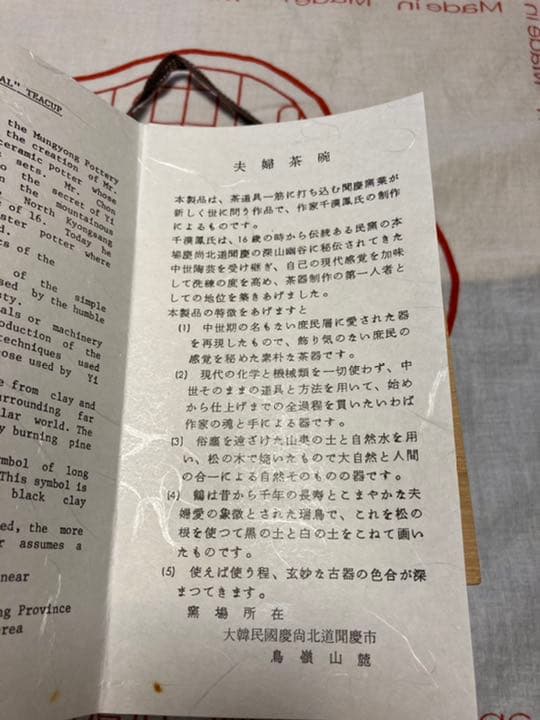 Made in
Made
AL" TEACUP
the Mungyong Pottery
the creation of Mr.
ceramic potter whose
sets. Mr. Chon
to the secret of Yi
the mountainous
North Kyongsang
of 16. Today he
ster potter where
ts of the
of the simple
sed by the humble
ty.
als or machinery
roduction of the
techniques used
ose used by Yi
e from clay and
urrounding far
lar world. The
y burning pine
ymbol of long
This symbol is
black clay
ed, the more
r assumes a
near
ng Province
rea
夫婦茶碗
本製品は、茶道具一筋に打ち込む聞慶窯業が
新しく世に問う作品で、作家千漢鳳氏の制作
によるものです。
千漢鳳氏は、16歳の時から伝統ある民窯の本
場慶尚北道聞慶の深山幽谷に秘伝されてきた
中世陶芸を受け継ぎ、自己の現代感覚を加味
して洗練の度を高め、茶器制作の第一人者と
しての地位を築きあげました。
本製品の特徴をあげますと
(1) 中世期の名もない庶民層に愛された器
を再現したもので、飾り気のない庶民の
感覚を秘めた素朴な茶器です。
(2) 現代の化学と機械類を一切使わず、中
世そのままの道具と方法を用いて、始め
から仕上げまでの全過程を貫いたいわば
作家の魂と手による器です。
(3) 俗塵を遠ざけた山奥の土と自然水を用
い、松の木で焼いたもので大自然と人間
の合一による自然そのものの器です。
(4) 鶴は昔から千年の長寿とこまやかな夫
婦愛の象徴とされた瑞鳥で、これを松の
根を使つて黒の土と白の土をこねて画い
たものです。
(5) 使えば使う程、玄妙な古器の色合が深
まつてきます。
窯場所在
大韓民國慶尚北道聞慶市
鳥嶺山麓